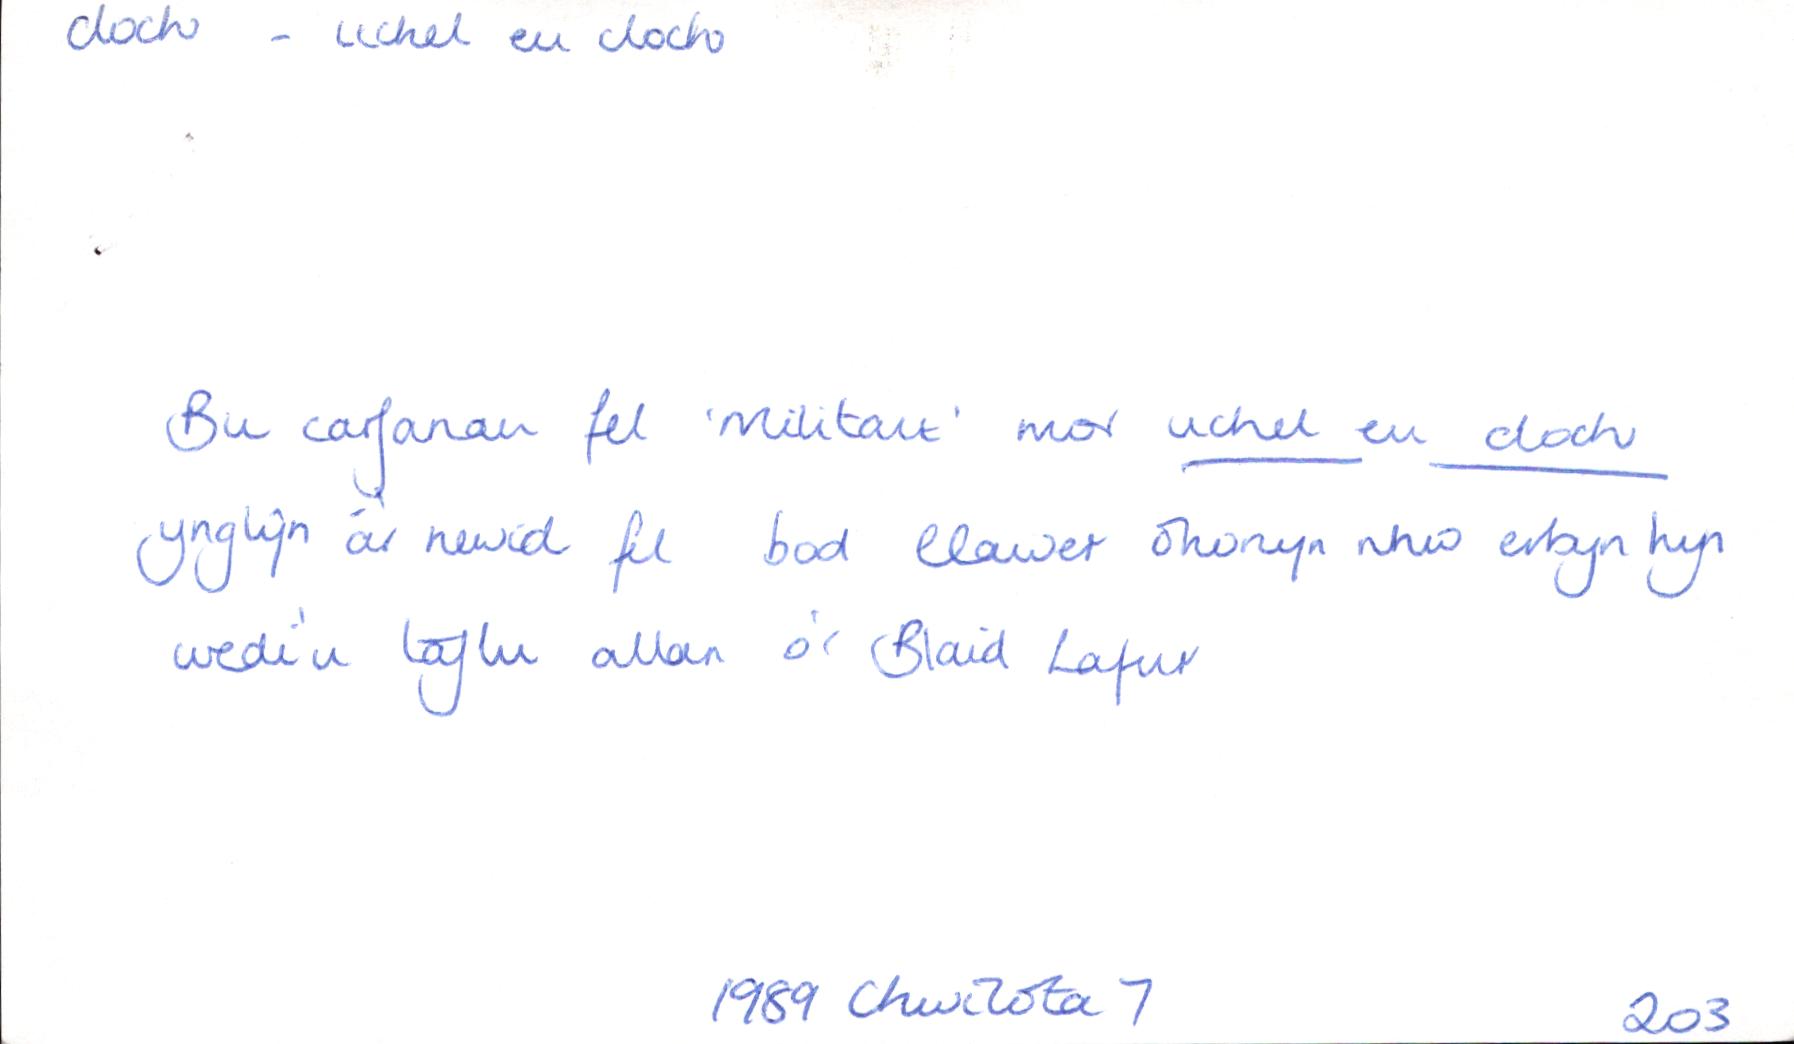 cloch - uchel eu cloch
Bu carfanau fel 'Militant' mor uchel eu cloch
ynglŷn â'r newid fel bod llawer ohonyn nhw erbyn hyn
wedi'u taflu allan o'r Blaid Lafur
1989 Chwilota 7 203